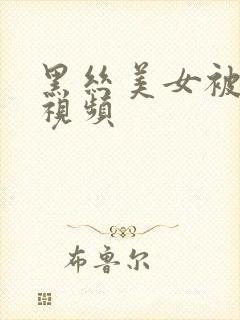 黑丝美女被
視頻
布鲁尔